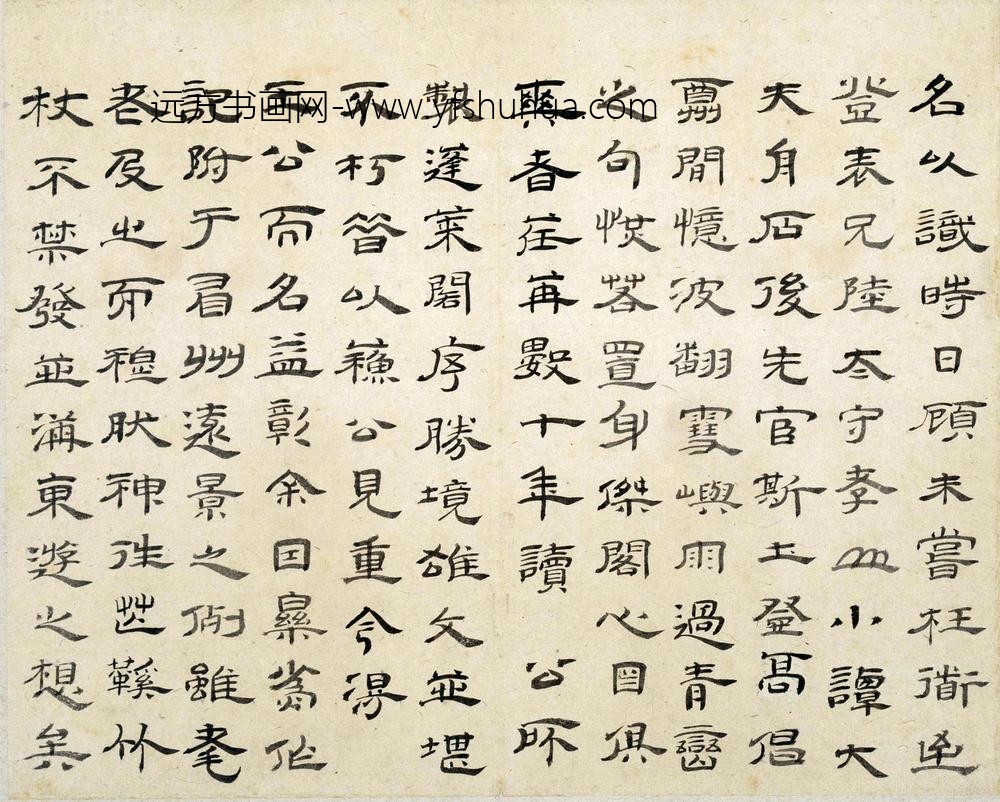 名以識時日顧未嘗枉銜迆
登表兄陸太守孝山小譚大
夫身石後先官斯土登高倡
間憶波翻雪嶼雨過青巒
句恍若置身傑閣心目俱
爽者荏苒數十年讀 公所
製蓬萊閣序勝境雄文並堪
不朽昔以蘇公見重今得
公而名益彰余因槀為作
記附于眉州遠景之例雖耄
老及之而穆肰神往芒鞵竹
杖不禁發並溝東遊之想矣
远方书画网-www.yishuhua.com